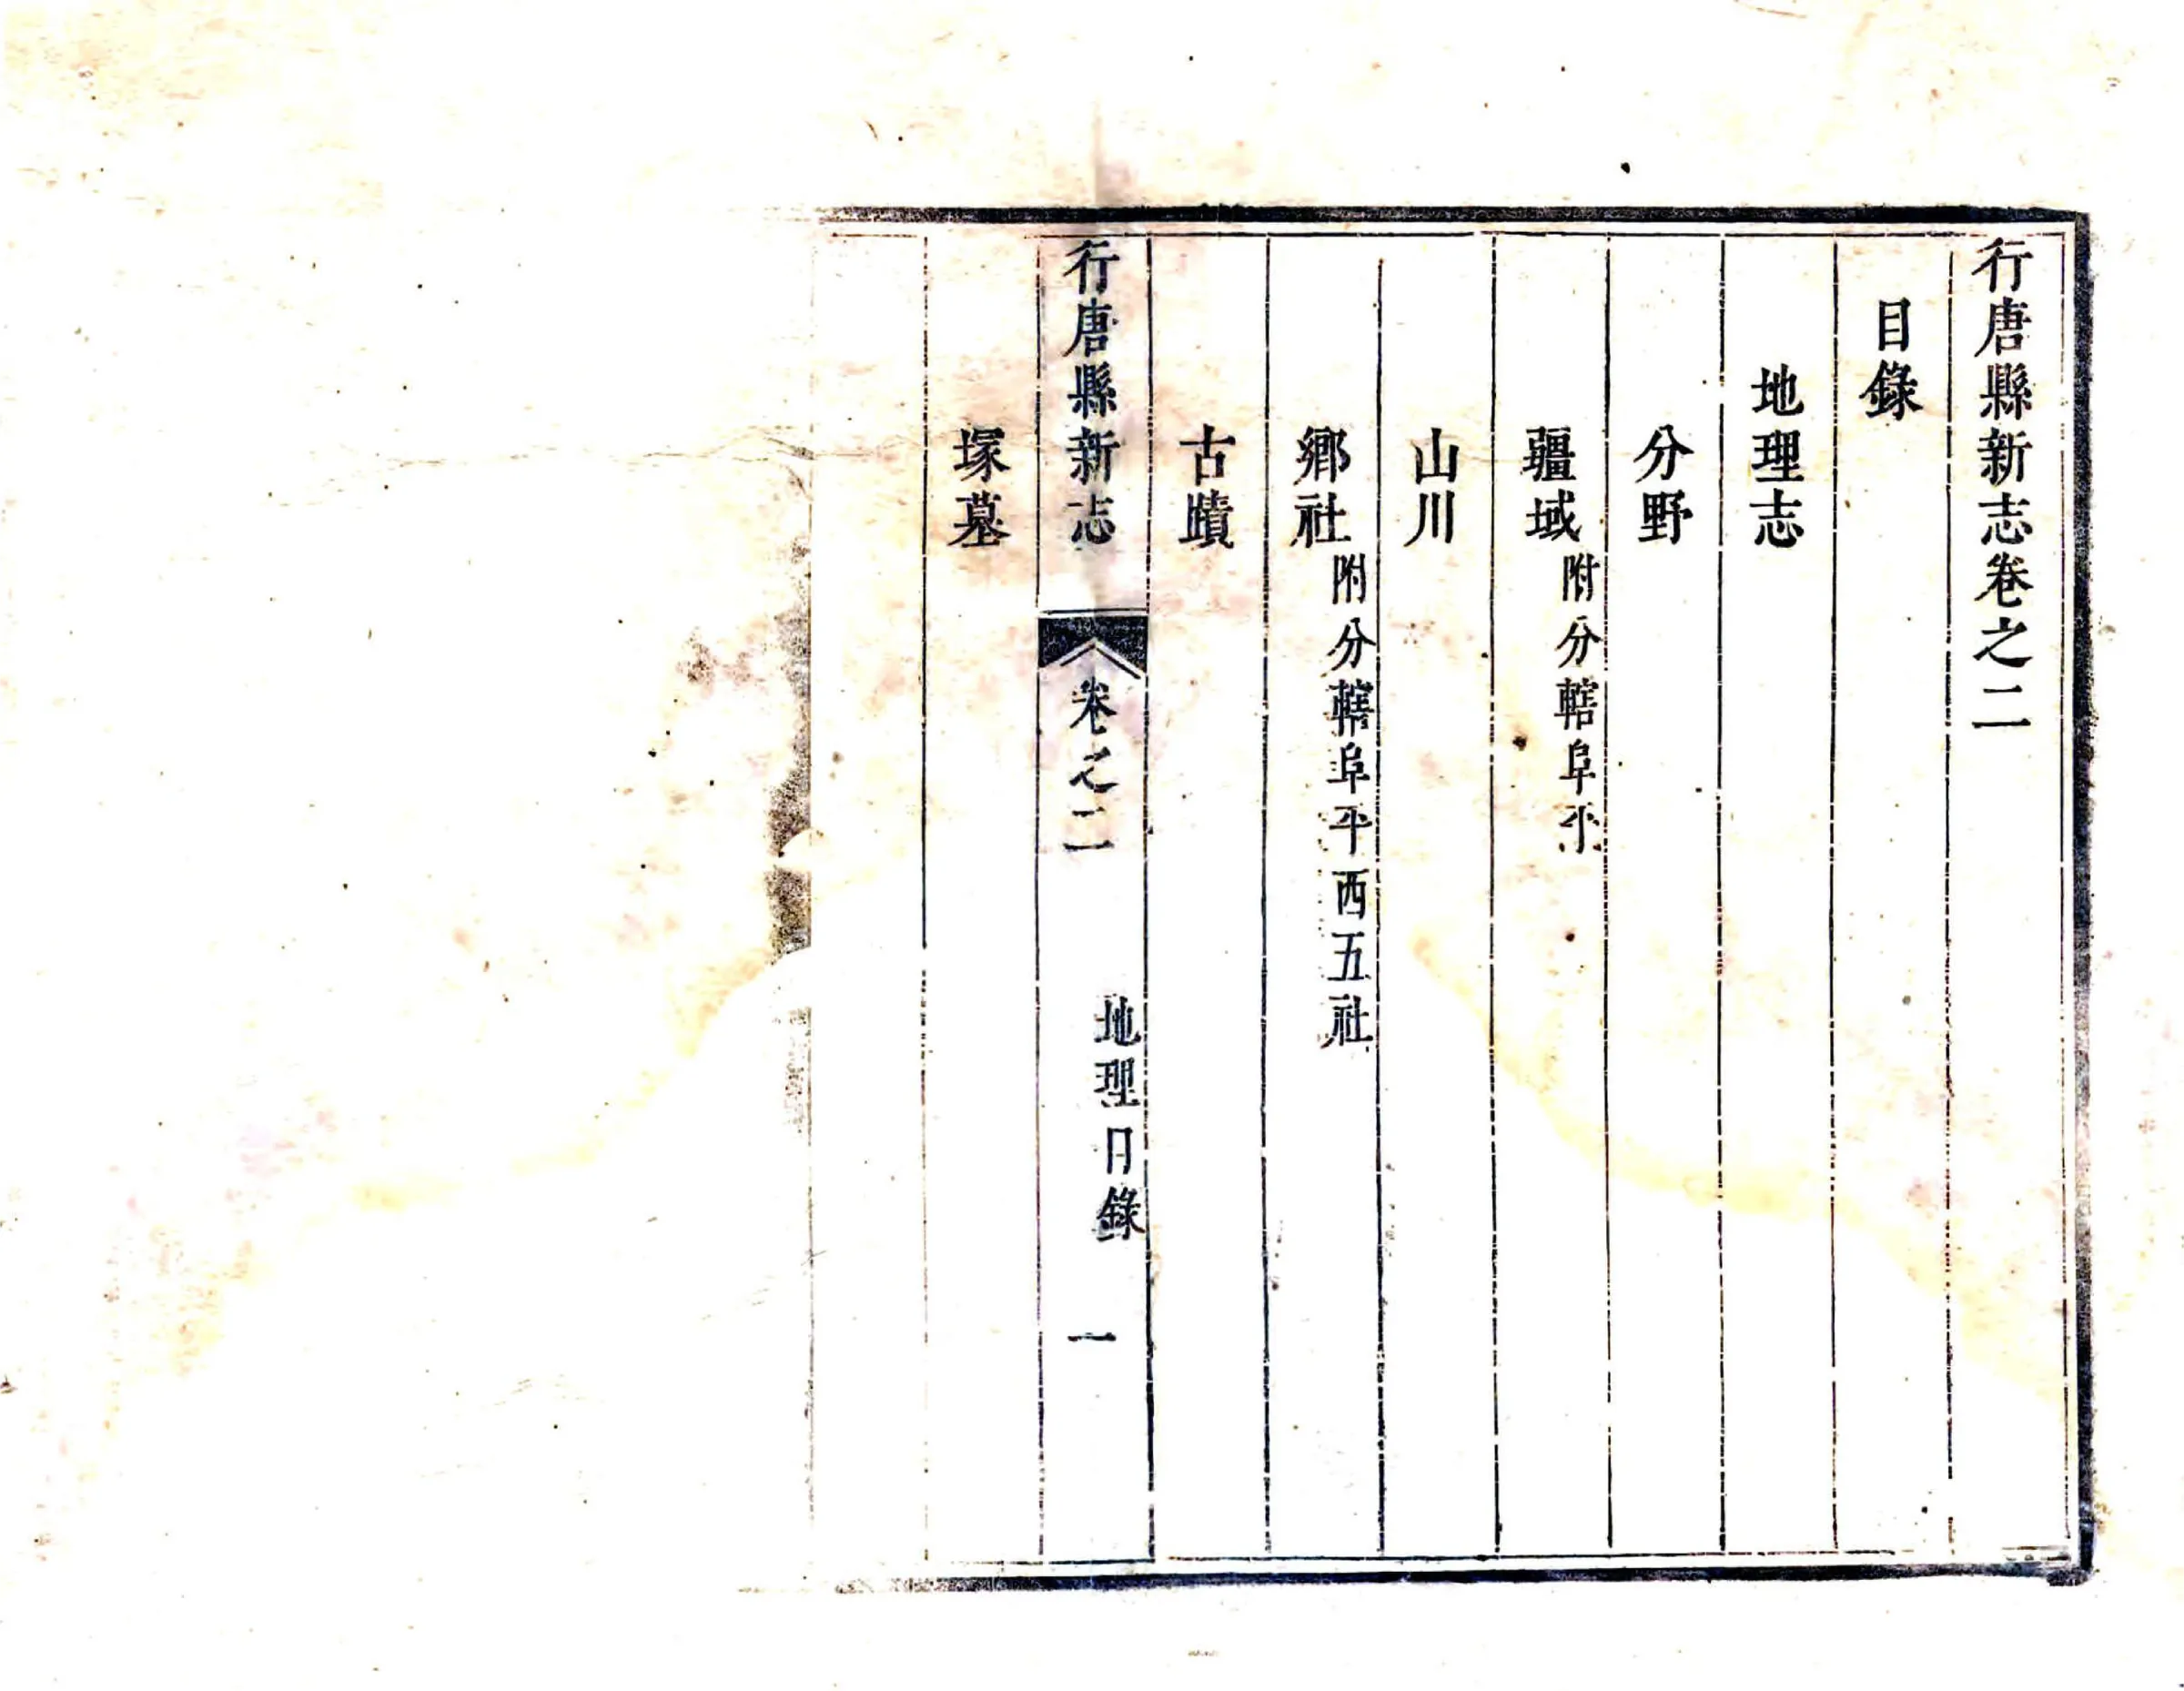 行唐縣新志卷之二
目錄
地理志
分野
疆域附分轄阜平
山川
鄉社附分轄阜平西五社
古蹟
行唐縣新志 卷之二 地理目錄 一
塚墓